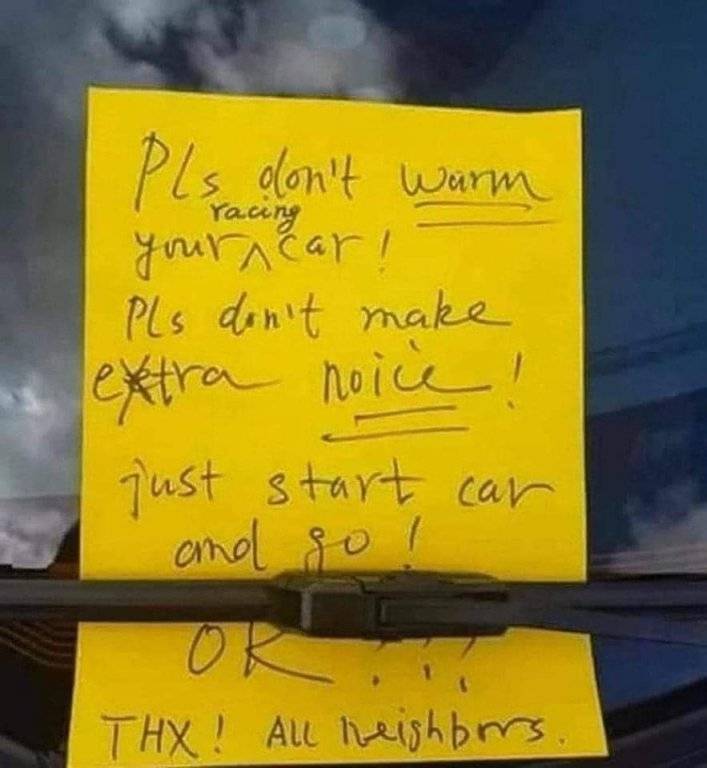 Pls don't warm
your ^ racing car!
Pls don't make
extra noice!
just start car
and go!
OK !!!
THX! All neighbors.